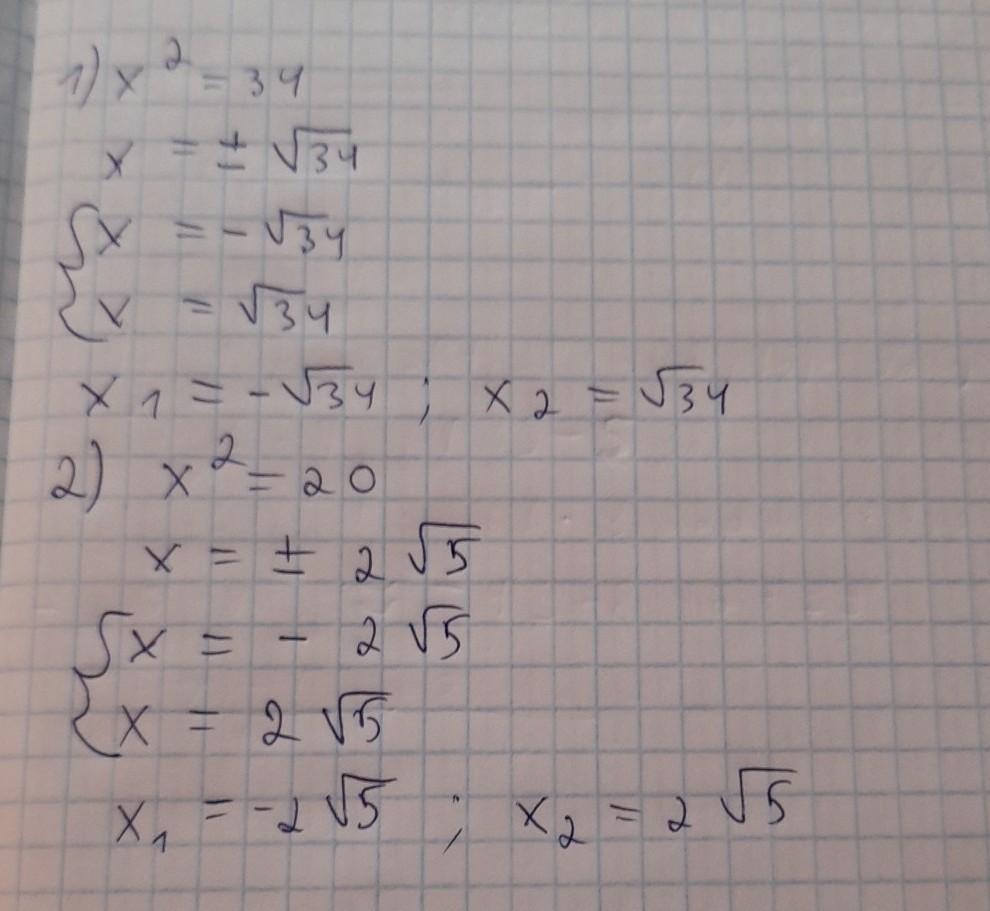 1) x² = 34
x = ± √34
{ x = - √34
x = √34
x₁ = - √34 ; x₂ = √34
2) x² = 20
x = ± 2 √5
{ x = - 2 √5
x = 2 √5
x₁ = -2 √5 ; x₂ = 2 √5